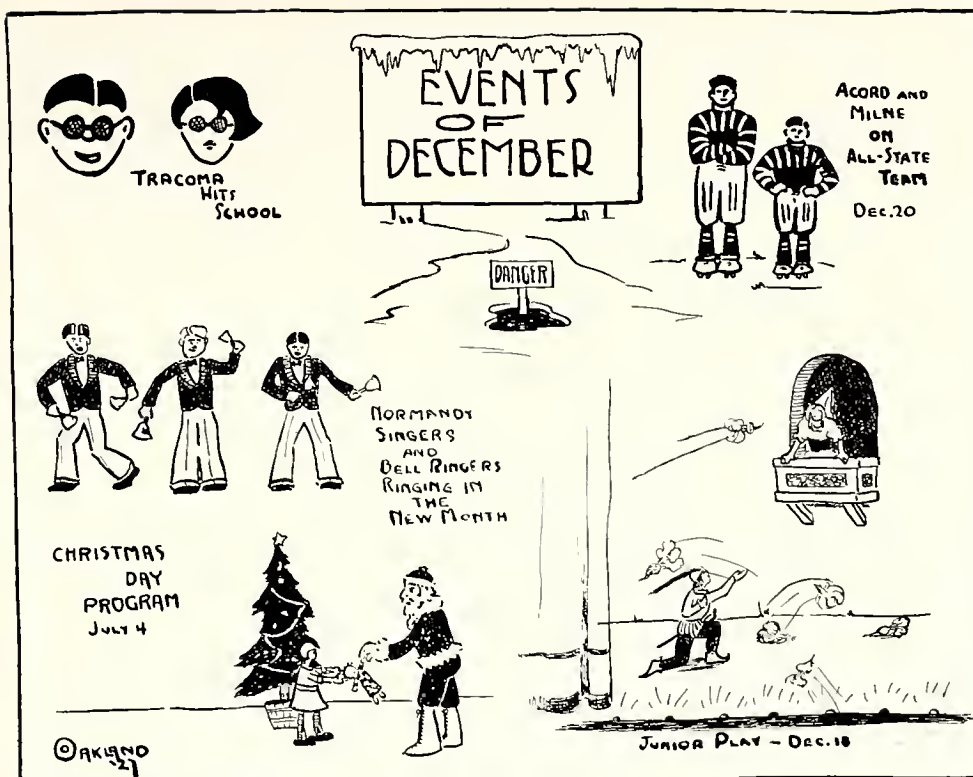 EVENTS
OF
DECEMBER
TRACOMA
HITS
SCHOOL
ACORD AND
MILNE
ON
ALL-STATE
TEAM
DEC. 20
DANGER
NORMANDY
SINGERS
AND
BELL RINGERS
RINGING IN
THE
NEW MONTH
CHRISTMAS
DAY
PROGRAM
JULY 4
JUNIOR PLAY - DEC. 18
OAKLAND
'27